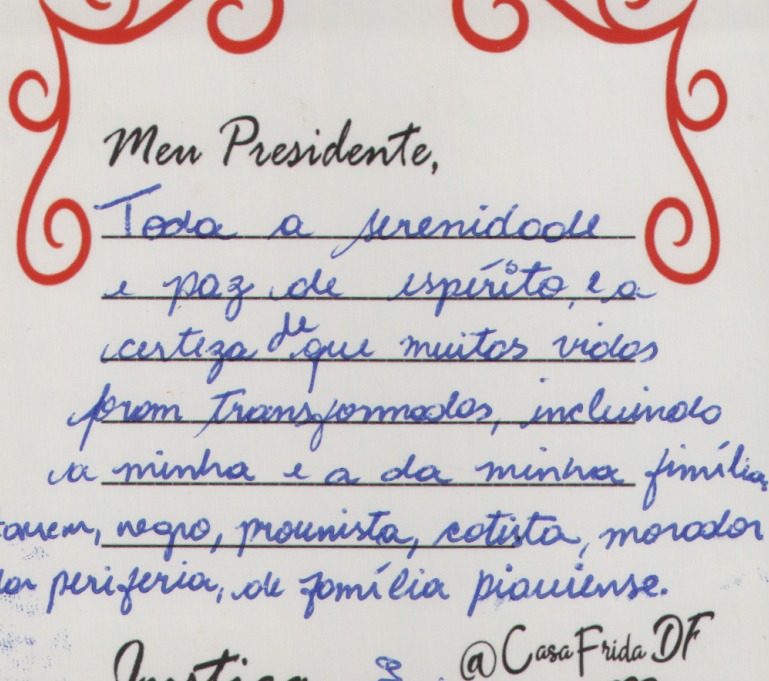 Meu Presidente,
Toda a serenidade
e paz de espírito, e a
certeza de que muitas vidas
foram transformadas, incluindo
a minha e a da minha fimília,
negro, prounista, cotista, morador
periferia, de família piauiense.
@CasaFridaDF